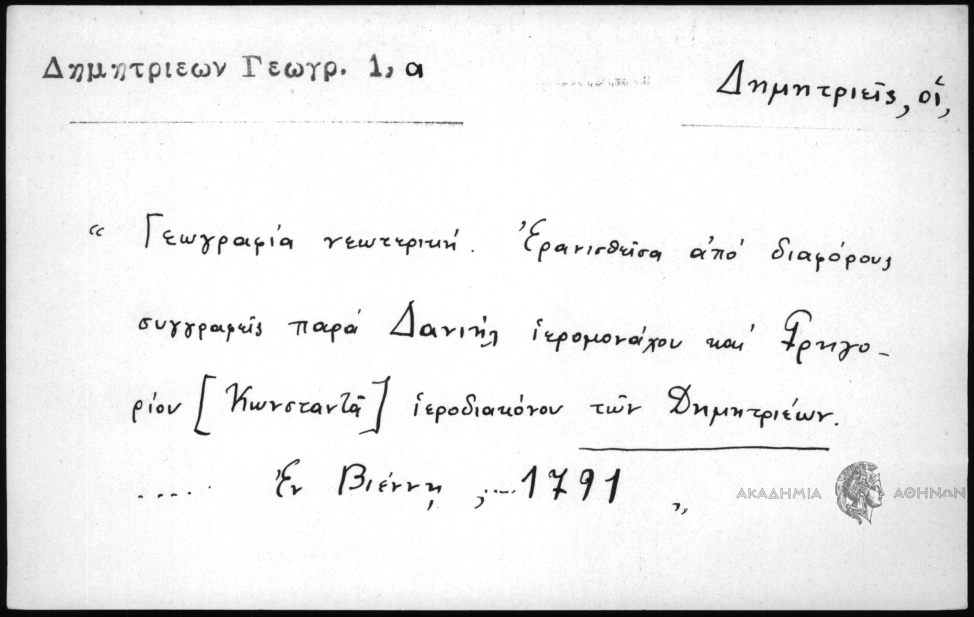 Δημητριεων Γεωγρ. 1, α
Δημητριεῖς, οἱ,
“ Γεωγραφία νεωτερική. Ἐρανισθεῖσα ἀπό διαφόρους
συγγραφεῖς παρά Δανιήλ ἱερομονάχου καί Γρηγο-
ρίου [Κωνσταντᾶ] ἱεροδιακόνου τῶν Δημητριέων.
..... Ἐν Βιέννῃ, ;....1791 „
ΑΚΑΔΗΜΙΑ ΑΘΗΝΩΝ